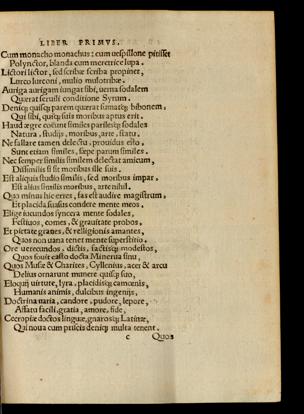 LIBER PRIMVS.
Cum monacho monachus: cum uespillone pitisset
Polynctor, blanda cum meretrice lupa.
Lictori lictor, sed scribæ scriba propinet,
Lurco lurconi, mulio mulotribæ.
Auriga aurigam iungat sibi, uerna sodalem
Quærat seruili conditione Syrum.
Deniq; quisq; parem quærat sumatq; bibonem,
Qui sibi, quiq; suis moribus aptus erit.
Haud ægre coëunt similes parilesq; sodales
Natura, studijs, moribus, arte, statu.
Ne fallare tamen delectu, prouidus esto,
Sunt etiam similes, sæpe parum similes.
Nec semper similis similem delectat amicum,
Dissimilis si sit moribus ille suis.
Est aliquis studio similis, sed moribus impar,
Est alius similis moribus, arte nihil.
Qua minus hic erres, fas est audire magistrum,
Et placida iussus condere mente meos.
Elige iucundos syncera mente sodales,
Festiuos, comes, & grauitate probos.
Et pietate graues, & relligionis amantes,
Quos non uana tenet mente superstitio.
Ore uerecundos, dictis, factisq; modestos,
Quos fouit casto docta Minerua sinu,
Quos Musæ & Charites, Cyllenius, acer & arcu
Delius ornarunt munere quisq; suo,
Eloquij uirtute, lyra, placidisq; camœnis,
Humanis animis, dulcibus ingenijs,
Doctrina uaria, candore, pudore, lepore,
Affatu facili, gratia, amore, fide,
Cecropiæ doctos linguæ, gnarosq; Latinæ,
Qui noua cum priscis deniq; multa tenent.
c Quos